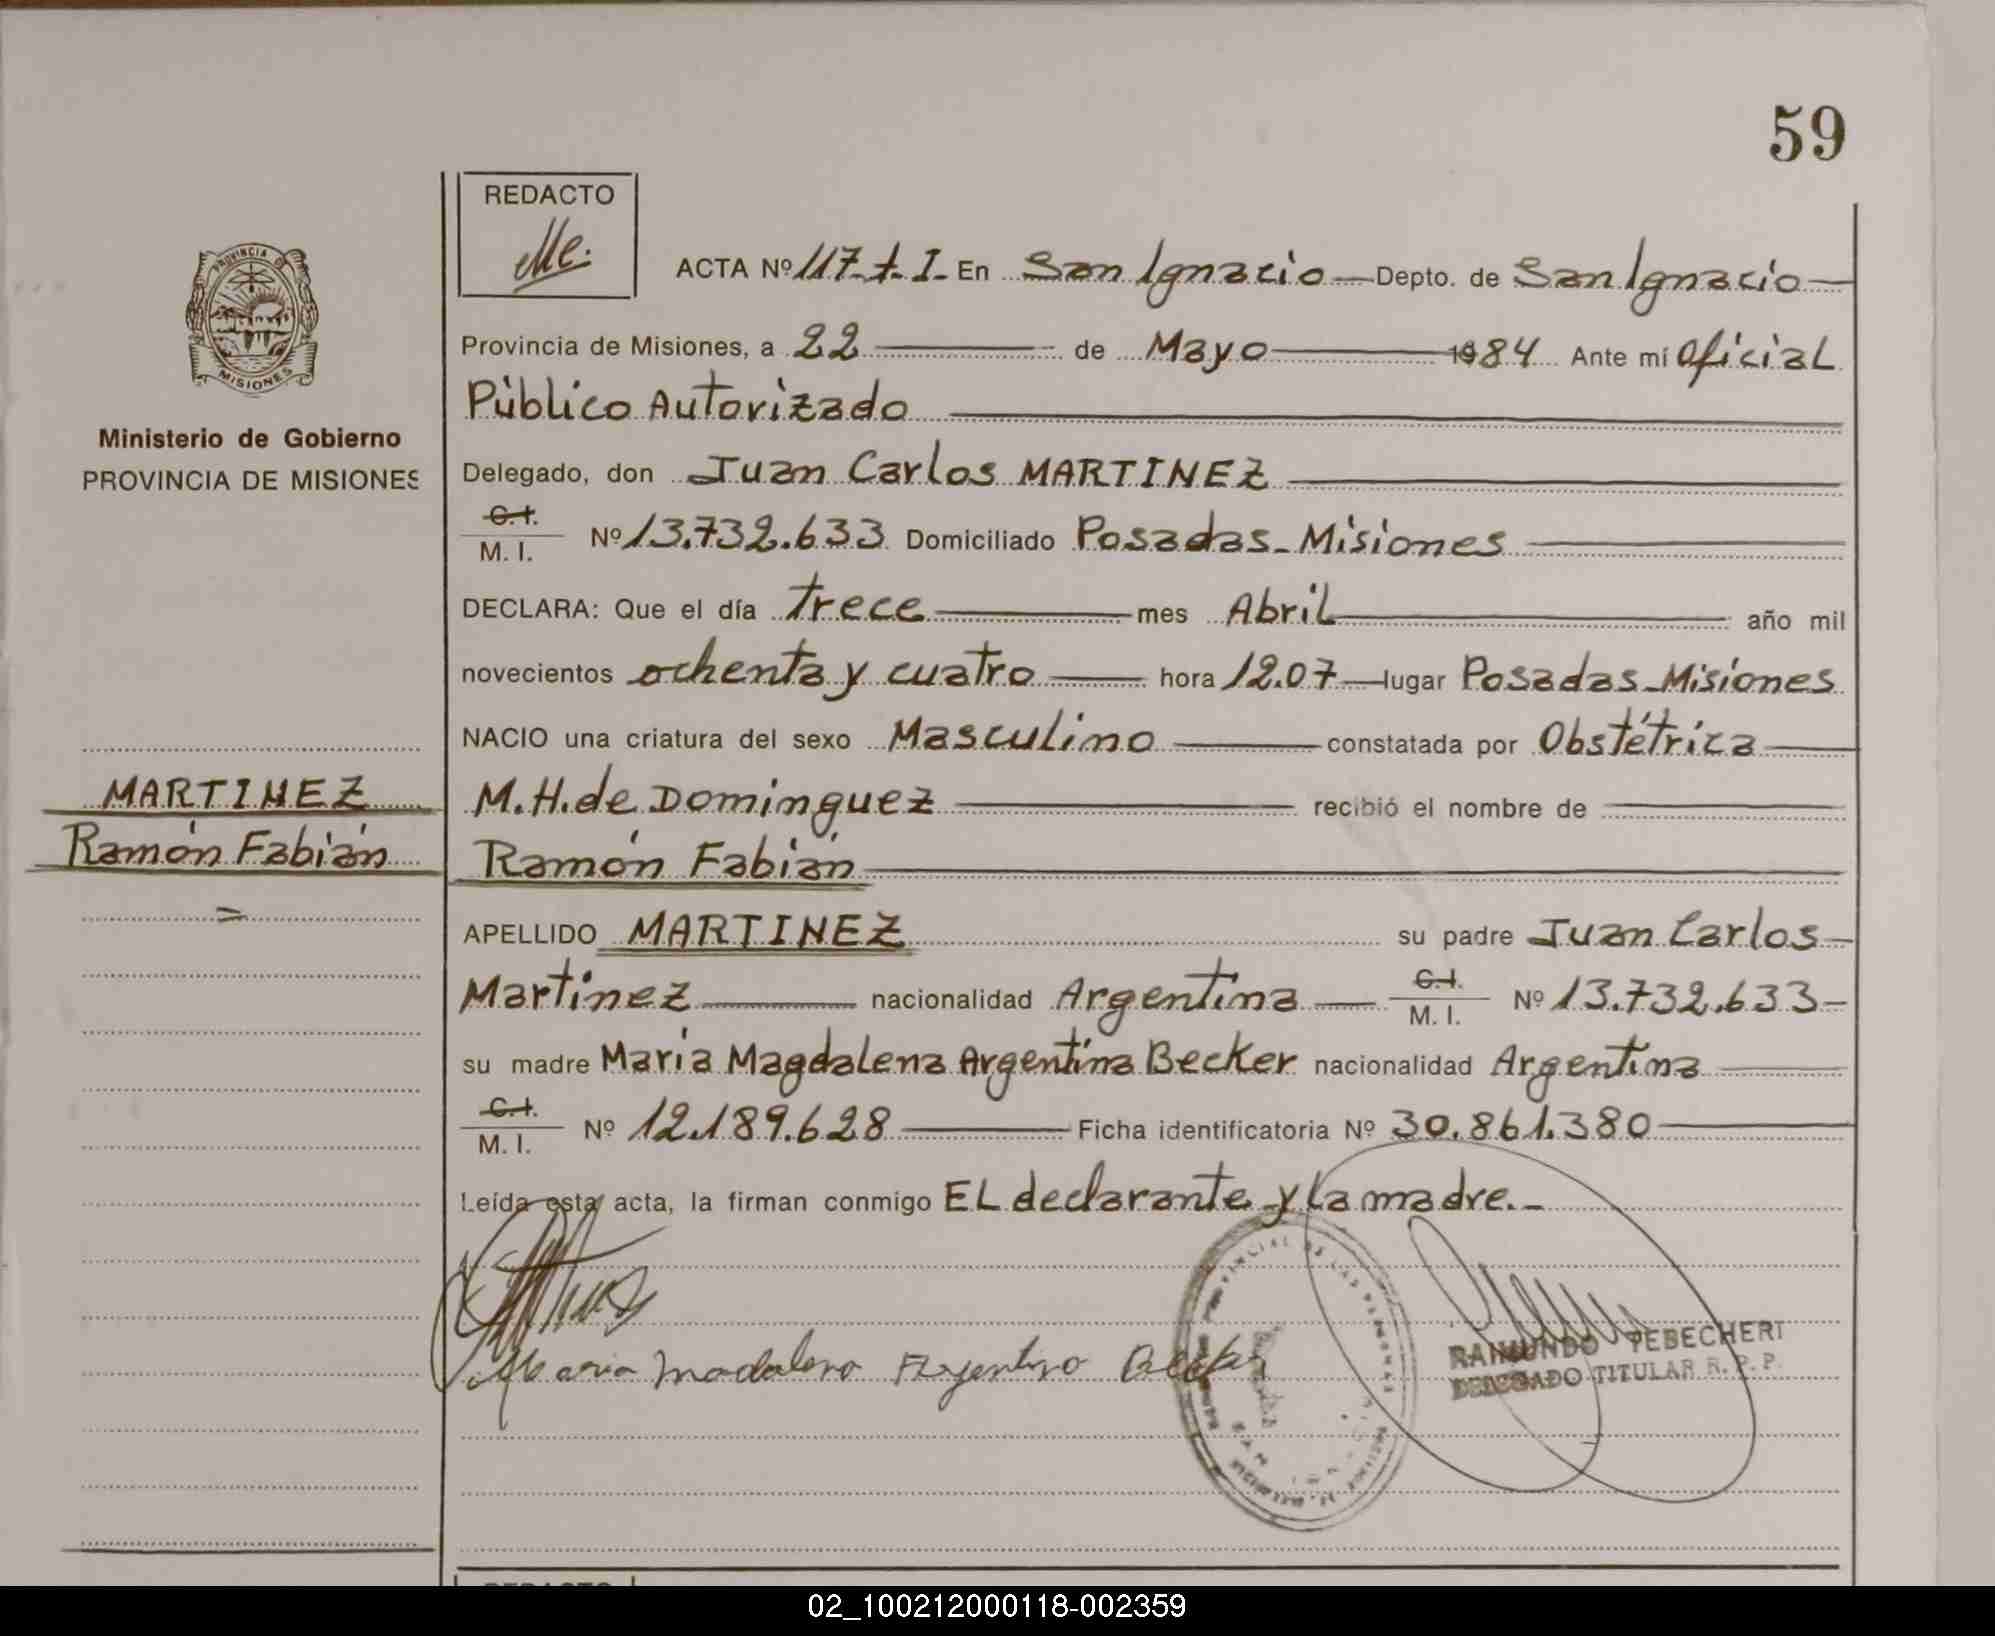 59
REDACTO
Me.
ACTA Nº 117-T.I- En San Ignacio Depto. de San Ignacio
Provincia de Misiones, a 22 de Mayo 1984 Ante mí Oficial
Público Autorizado
Delegado, don Juan Carlos MARTINEZ
C.I.
M. I. Nº 13.732.633 Domiciliado Posadas-Misiones
DECLARA: Que el día trece mes Abril año mil
novecientos ochenta y cuatro hora 12.07 lugar Posadas-Misiones
NACIO una criatura del sexo Masculino constatada por Obstétrica
M.H.de Dominguez recibió el nombre de
Ramón Fabián
APELLIDO MARTINEZ su padre Juan Carlos
Martinez nacionalidad Argentina C.I. M. I. Nº 13.732.633
su madre Maria Magdalena Argentina Becker nacionalidad Argentina
C.I.
M. I. Nº 12.189.628 Ficha identificatoria Nº 30.861.380
Leída esta acta, la firman conmigo EL declarante y la madre.-
Maria Madalena Argentina Becker
RAIMUNDO PEBECHERI
DELEGADO TITULAR R. P. P.
PROVINCIA DE
MISIONES
Ministerio de Gobierno
PROVINCIA DE MISIONES
MARTINEZ
Ramón Fabián
=
REDACTO
02_100212000118-002359